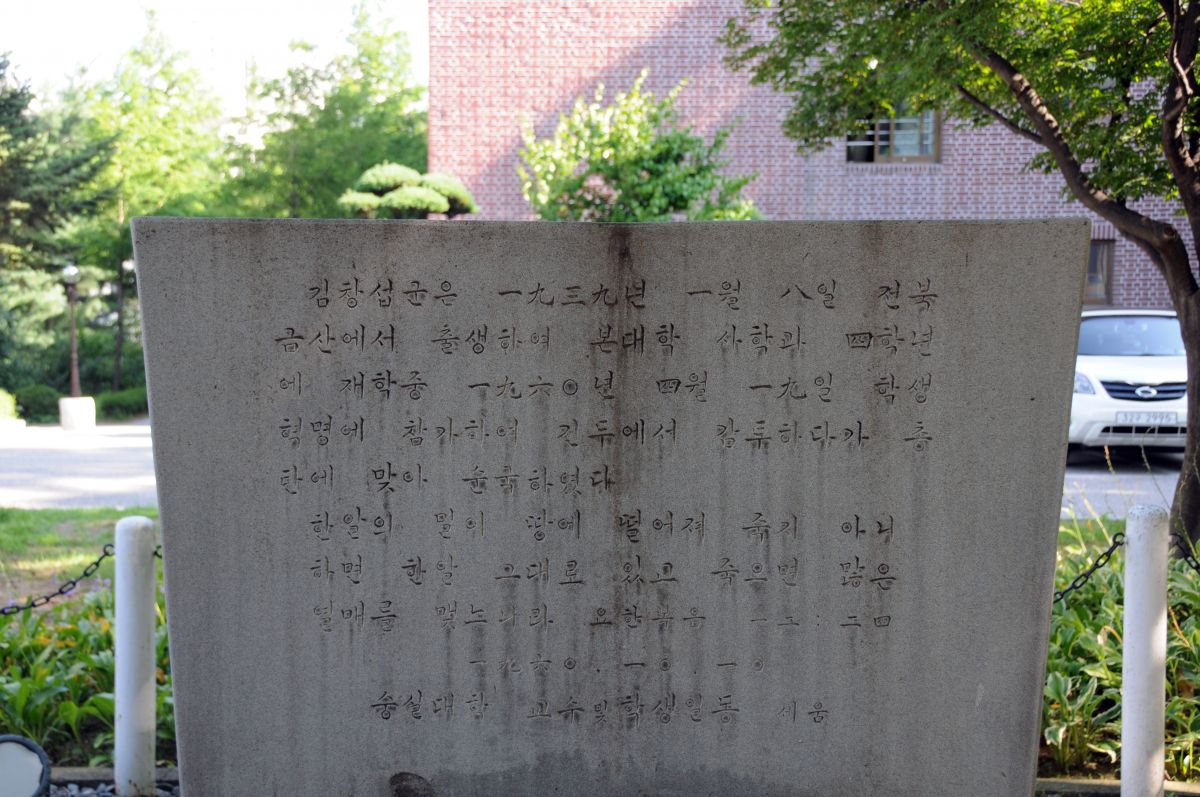 김창섭군은 一九三九년 一월 八일 전북
금산에서 출생하여 본대학 사학과 四학년
에 재학중 一九六○년 四월 一九일 학생
혁명에 참가하여 진두에서 활약하다가 총
탄에 맞아 순국하였다
한알의 밀이 땅에 떨어져 죽지 아니
하면 한알 그대로 있고 죽으면 많은
열매를 맺느니라 요한복음 一二:二四
一九六○.一○.一○
숭실대학 교수및학생일동 세움